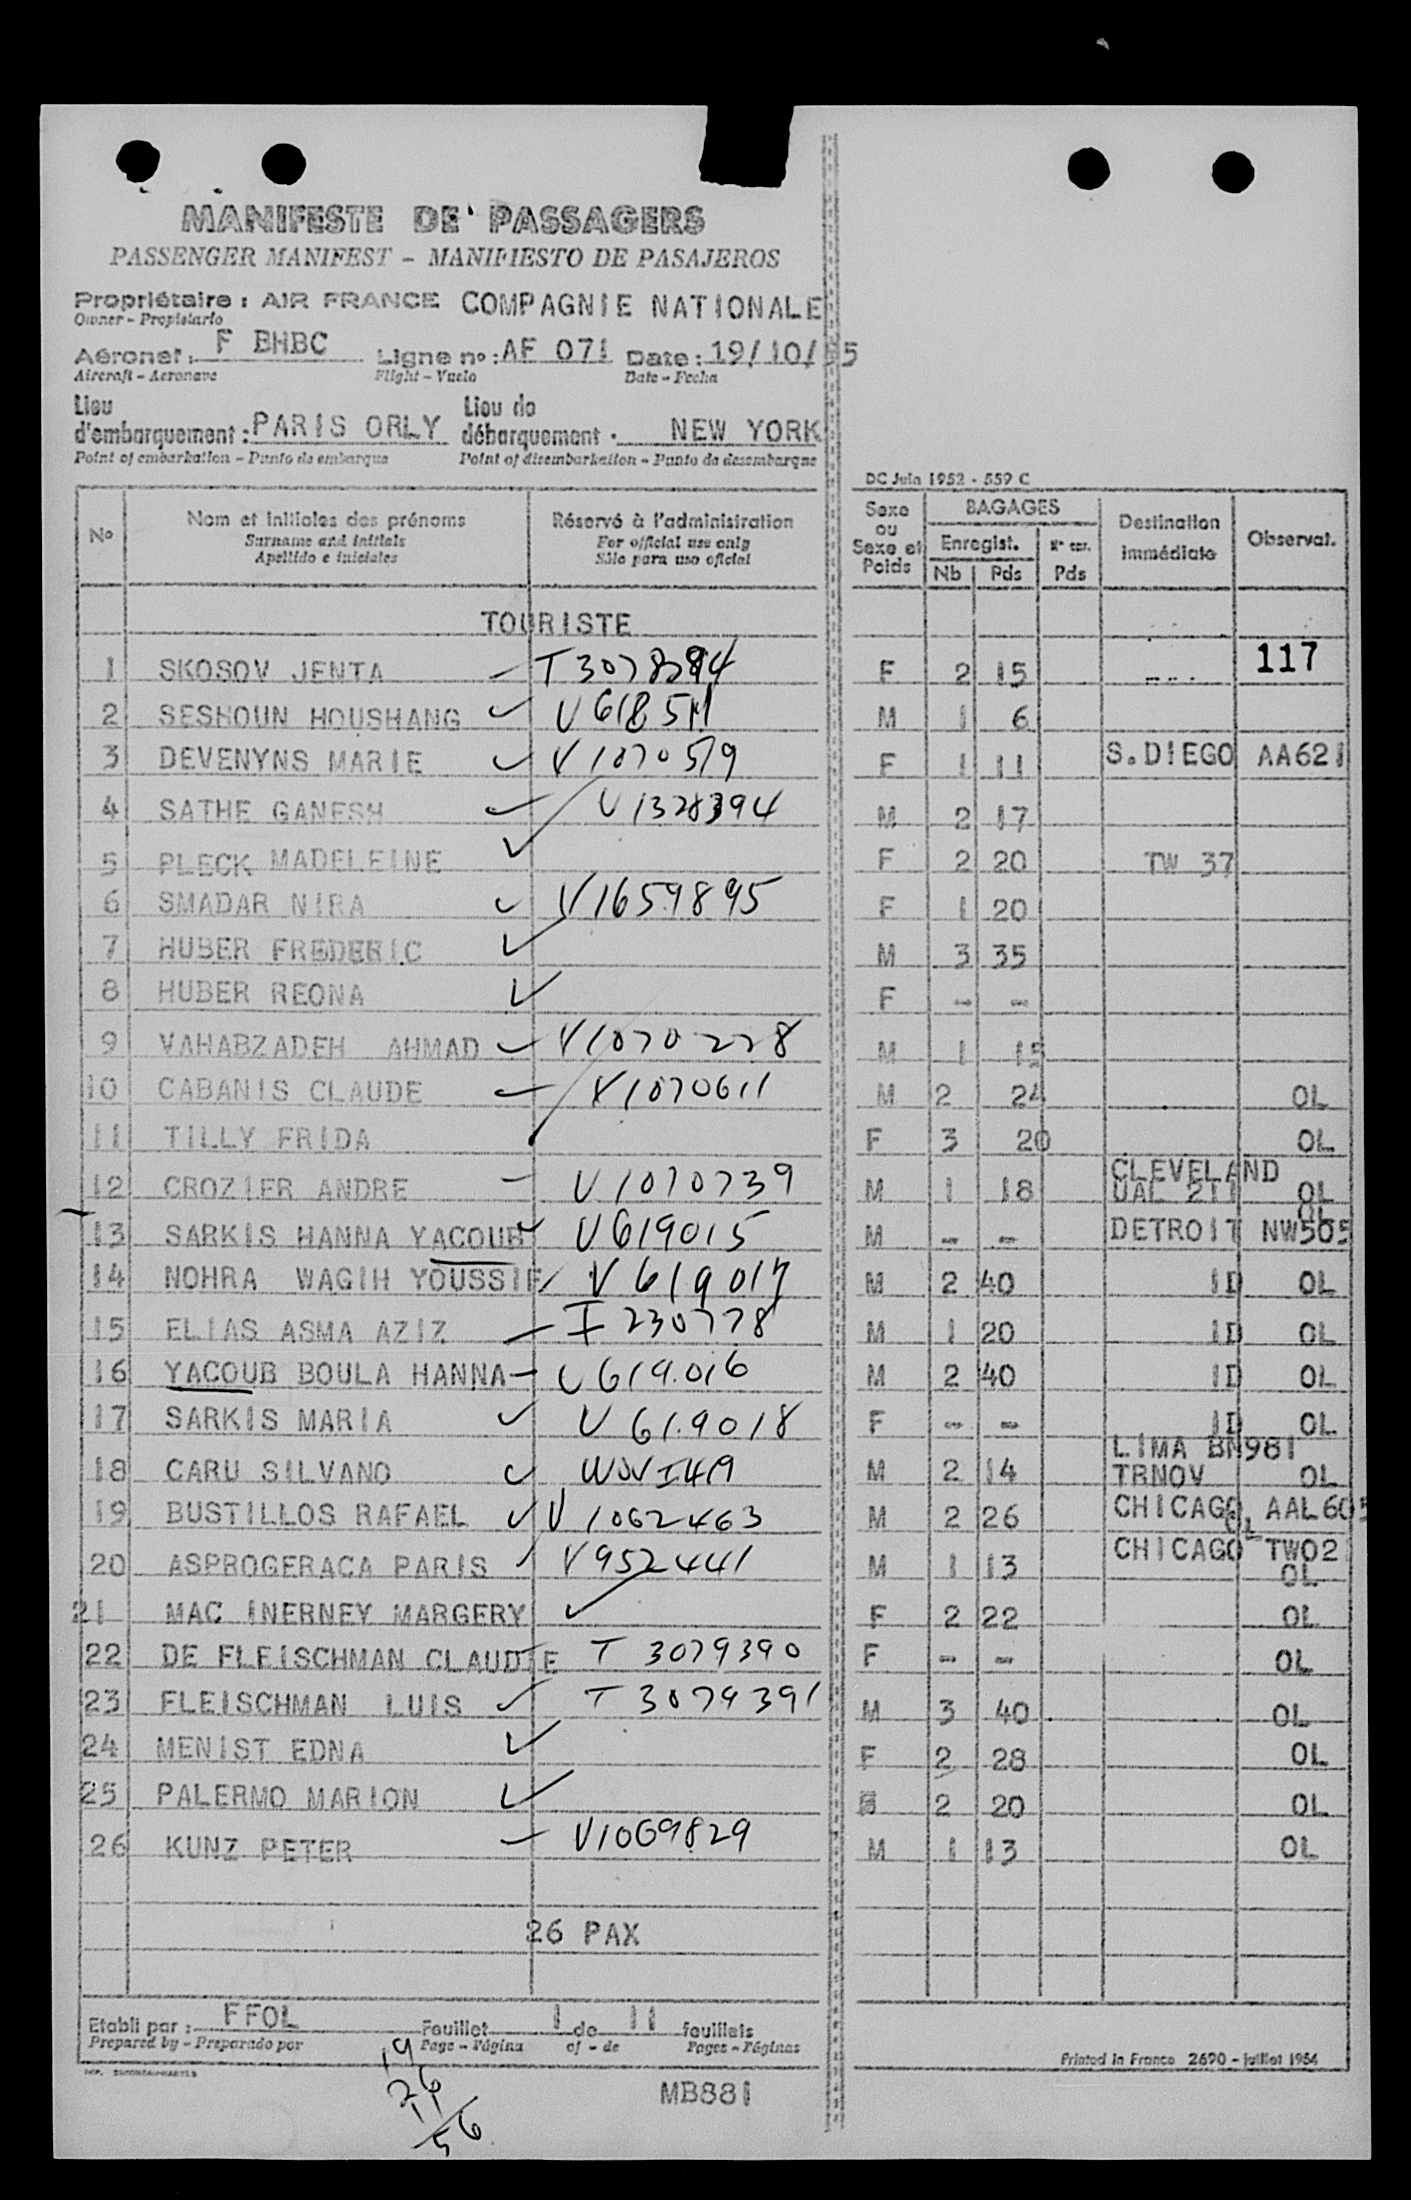 MANIFESTE DE PASSAGERS
PASSENGER MANIFEST - MANIFIESTO DE PASAJEROS
Propriétaire : AIR FRANCE COMPAGNIE NATIONALE
Owner - Propietario
Aéronef : F BHBC Ligne no : AF 071 Date : 19/10/55
Aircraft - Aeronave Flight - Vuelo Date - Fecha
Lieu d'embarquement : PARIS ORLY Lieu de débarquement : NEW YORK
Point of embarkation - Punto de embarque Point of disembarkation - Punto de desembarque
DC Juin 1952 - 559 C
No Nom et initiales des prénoms Réservé à l'administration Sexe ou Sexe et Poids BAGAGES Destination immédiate Observat.
Surname and initials For official use only Enregist. Pds
Apellido e iniciales Sólo para uso oficial Nb Pds
TOURISTE
117
1 SKOSOV JENTA T3078294 F 2 15 ---
2 SESHOUN HOUSHANG V618511 M 1 6
3 DEVENYNS MARIE V1070519 F 1 11 S.DIEGO AA621
4 SATHE GANESH V1328394 M 2 17
5 PLECK MADELEINE F 2 20 TW 37
6 SMADAR NIRA V1659895 F 1 20
7 HUBER FREDERIC M 3 35
8 HUBER REONA F - -
9 VAHABZADEH AHMAD V1070228 M 1 15
10 CABANIS CLAUDE V1070611 M 2 24 OL
11 TILLY FRIDA F 3 20 OL
12 CROZIER ANDRE V1070739 M 1 18 CLEVELAND UAL 211 OL
13 SARKIS HANNA YACOUB V619015 M - - DETROIT NW505 OL
14 NOHRA WAGIH YOUSSIF V619017 M 2 40 ID OL
15 ELIAS ASMA AZIZ I 230778 M 1 20 ID OL
16 YACOUB BOULA HANNA V619016 M 2 40 ID OL
17 SARKIS MARIA V 619018 F - - ID OL
18 CARU SILVANO M 2 14 LIMA BN981 TRNOV OL
19 BUSTILLOS RAFAEL V 1062463 M 2 26 CHICAGO AAL605 OL
20 ASPROGERACA PARIS V952441 M 1 13 CHICAGO TW02 OL
21 MAC INERNEY MARGERY F 2 22 OL
22 DE FLEISCHMAN CLAUDIE T 3079390 F - - OL
23 FLEISCHMAN LUIS T 3079391 M 3 40 OL
24 MENIST EDNA F 2 28 OL
25 PALERMO MARION 2 20 OL
26 KUNZ PETER V1069829 M 1 13 OL
26 PAX
Etabli par : FFOL Feuillet 1 de 11 feuillets
Prepared by - Preparado por Page - Página of - de Pages - Páginas
Printed in France 2690 - juillet 1954
MB881
19
26
11
56